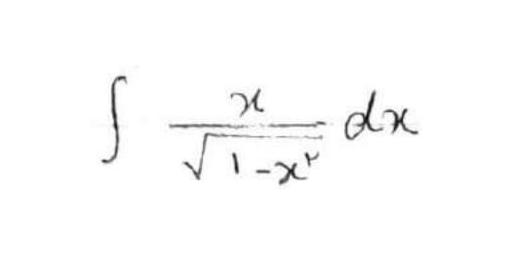 ∫ x / √(1-x²) dx